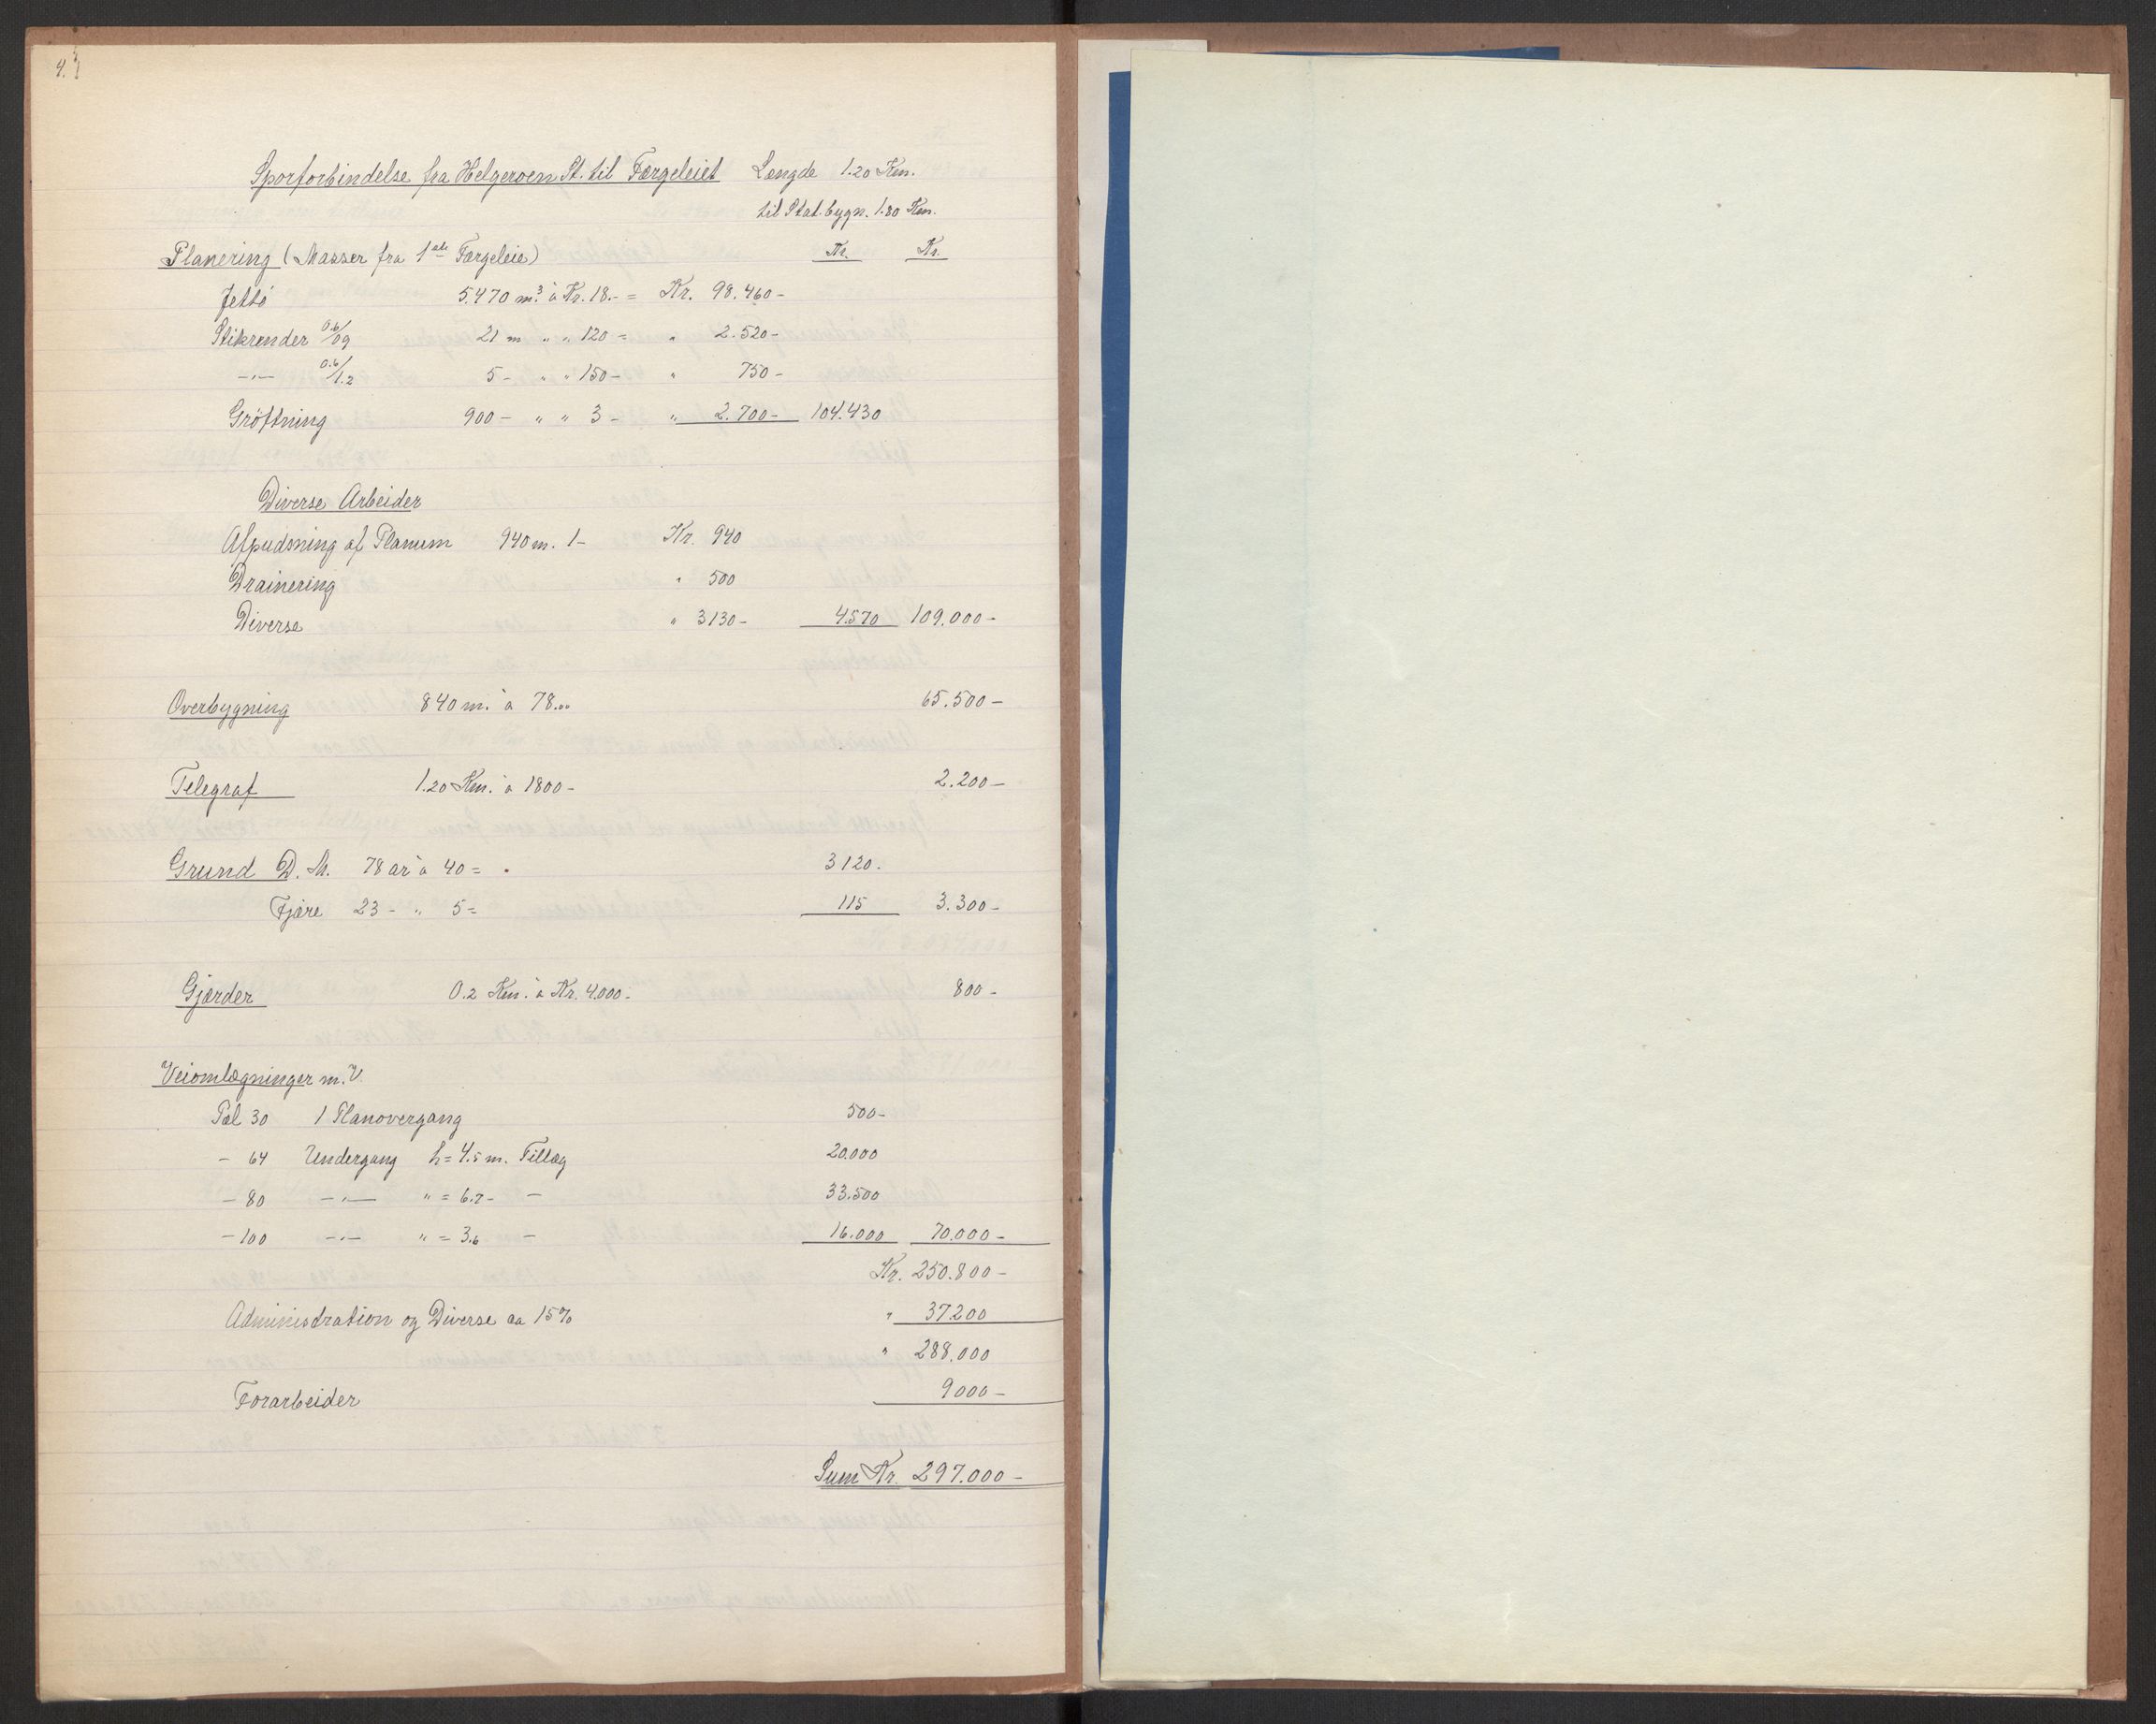 4.
Sporforbindelse fra Helgeroen St. til Færgeleiet Længde 1.20 Km.
til Stat.bygn. 1.80 Km.
Planering (Masser fra 1ste Færgeleie) Kr. Kr.
Jetté 5.470 m³. à Kr. 18.- = Kr. 98.460-
Stikrender 0.6/0.9 21 m " " 120 = " 2.520-
-"- 0.6/1.2 5 - " " 150 - " 750 -
Gröftning 900 - " " 3 - " 2.700- 104.430
Diverse Arbeider
Afpudsning af Planum 940 m. 1- Kr. 940
Drainering " 500
Diverse " 3130- 4570 109.000-
Overbygning 840 m. à 78.00 65.500-
Telegraf 1.20 Km. à 1800- 2.200-
Grund D. M. 78 ar à 40 = 3120.
Fjære 23 - " 5 = 115 3.300-
Gjærder 0.2 Km. à Kr. 4.000- 800-
Veiomlægninger m.V.
Pæl 30 1 Planovergang 500-
- 64 Undergang h = 4.5 m. Tillæg 20.000
- 80 -"- " = 6.7 - - 33.500
- 100 -"- " = 3.6 - 16.000 70.000-
Kr. 250.800-
Administration og Diverse ca 15% " 37200
" 288.000
Forarbeider 9000-
Sum Kr. 297.000-